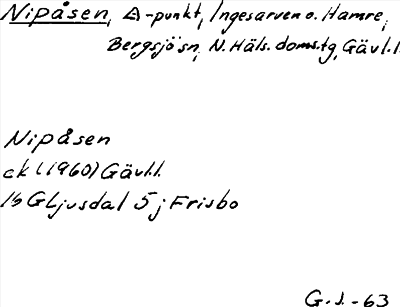 Nipåsen, △-punkt, Ingesarven o. Hamre,
Bergsjö sn, N. Häls. doms.tg, Gävl.l.
Nipåsen
ek (1960) Gävl.l.
16G Ljusdal 5j Frisbo
G.J.-63